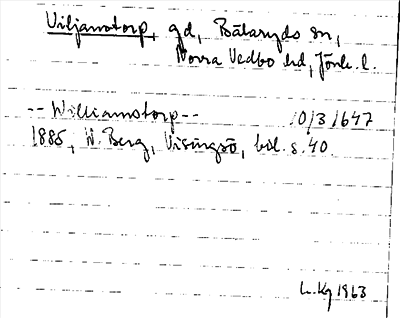 Viljamstorp, gd, Bälaryds sn,
Norra Vedbo hd, Jönk. l.
-- Williamstorp -- 10/3 1647
1885, W. Berg, Visingsö, bil. s. 40
L. Kg 1963